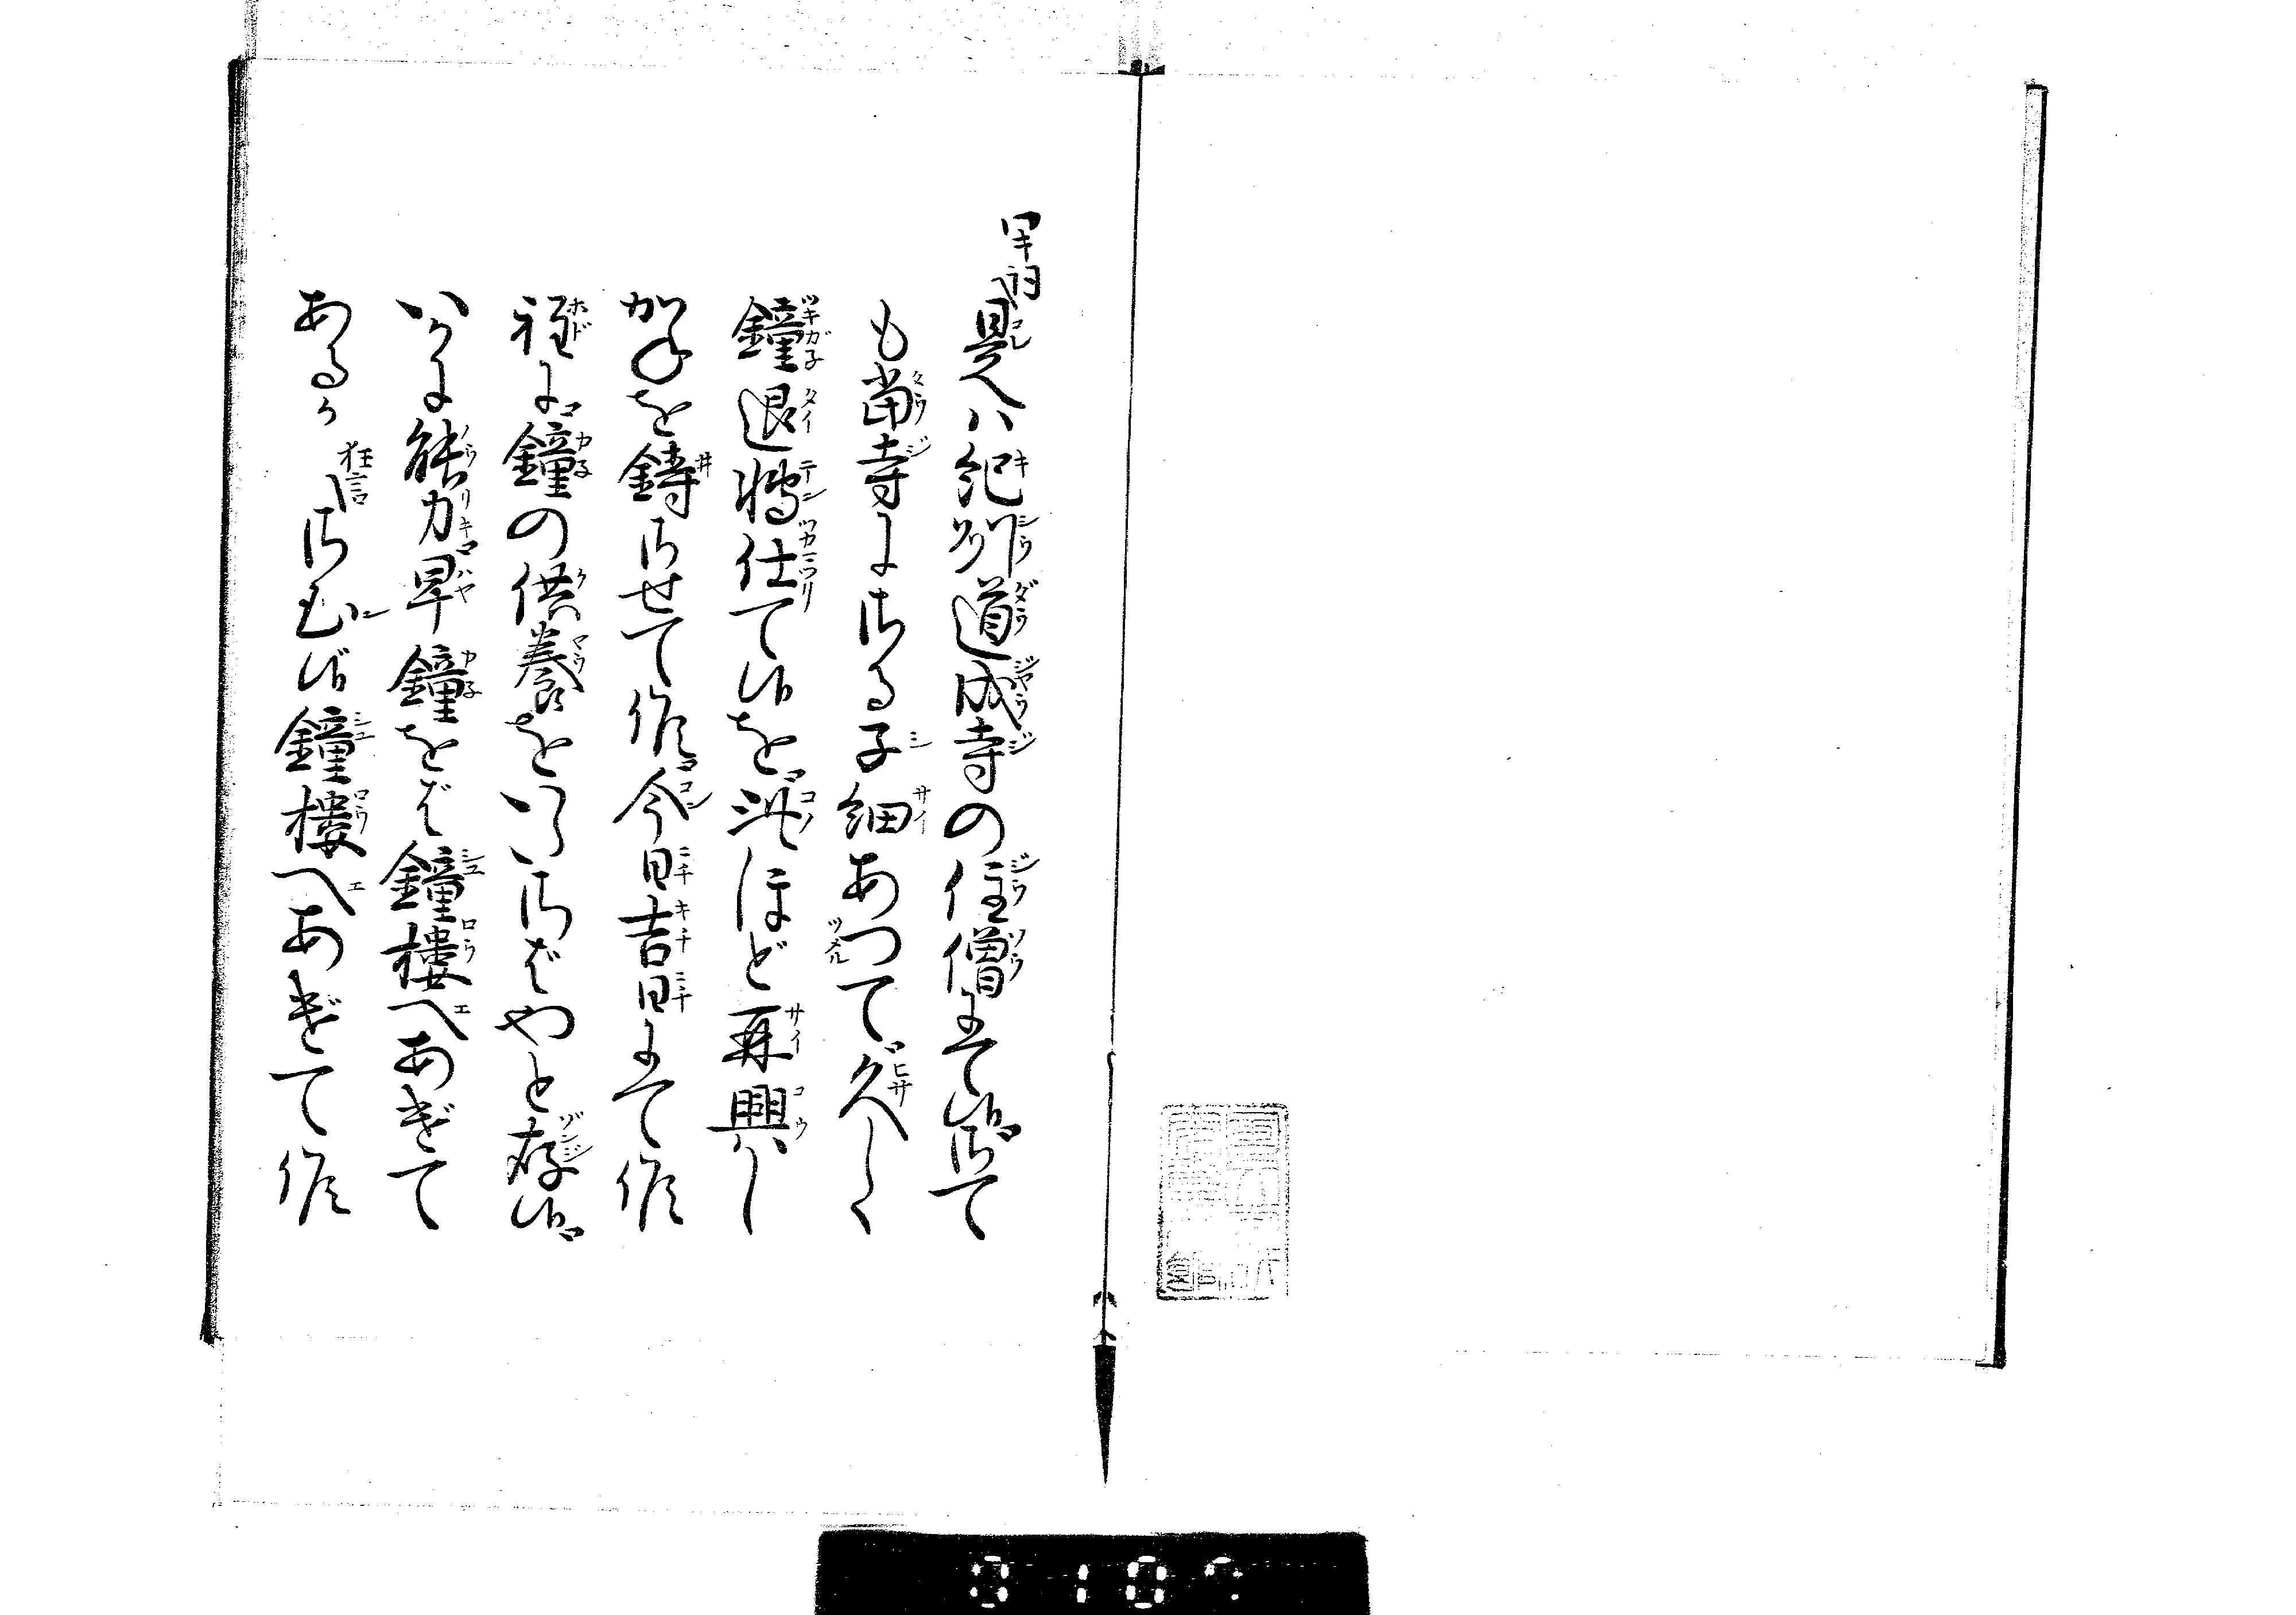 ワキ詞 是ハ紀州道成寺の住僧にて候さて
も當寺にさる子細あつて久しく
鐘退轉仕て候を此ほど再興し
かねを鑄させて候今日吉日にて候
程に鐘の供養をいたさばやと存候
いかに能力早鐘をば鐘樓へあげて
あるか 狂言 さむ候鐘樓へあげて候